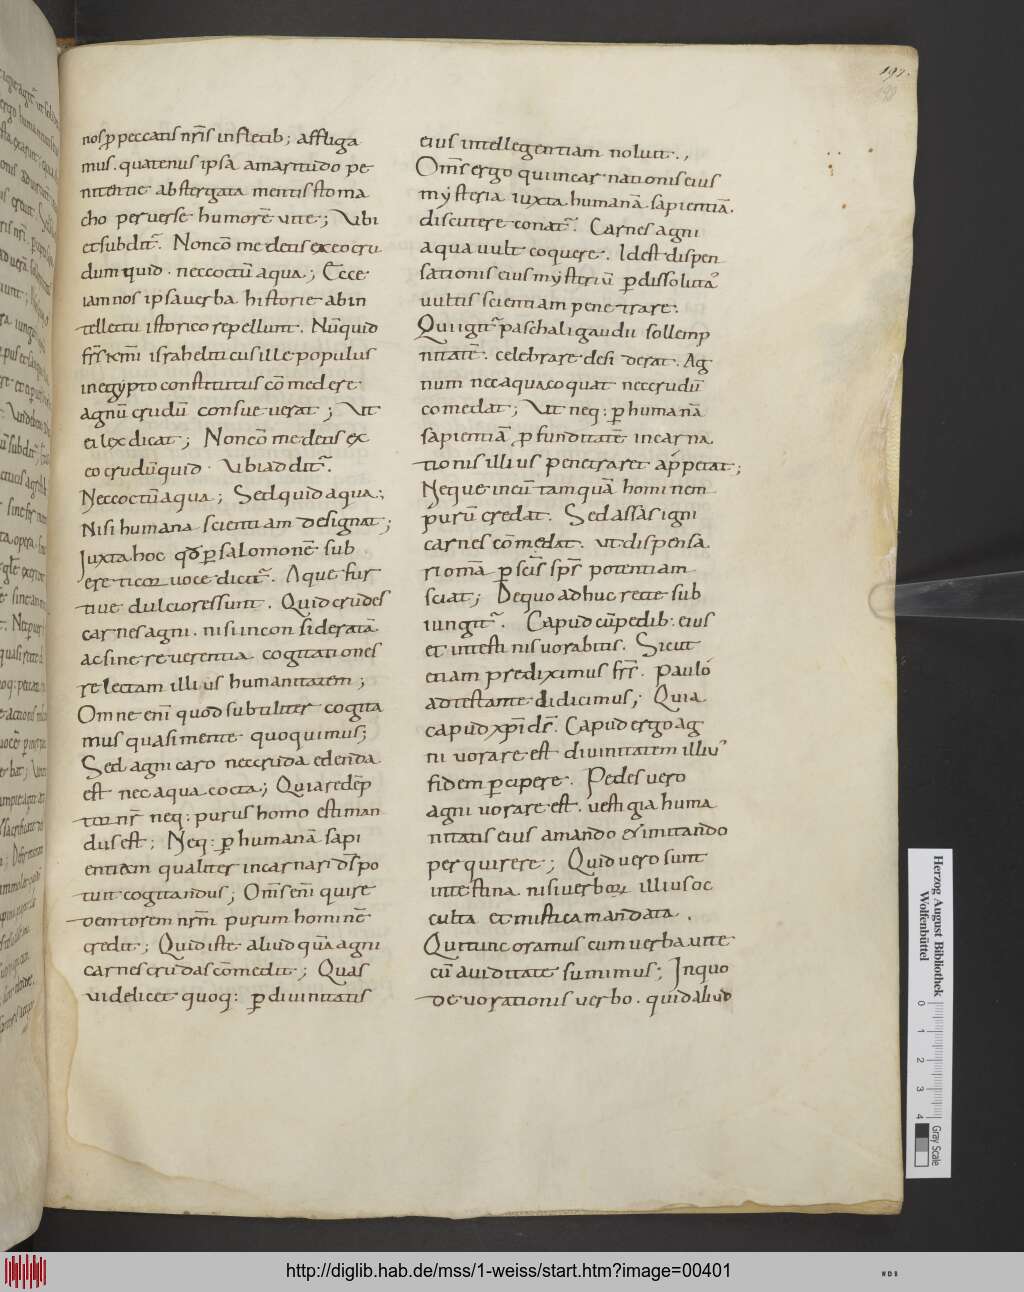 197.
nos p̱ peccatis nr̄is in fletib; affliga
mus. quatenus ipsa amaritudo pe
nitentie abstergat a mentis stoma
cho perverse humorē vite; Ubi
et subdit̄. Non cō medetis ex eo cru
dum quid. nec coctū aqua; Ecce
iam nos ipsa verba historie ab in
tellectu istorico repellunt. Nūquid
fr̄s km̄i israheliticus ille populus
in egypto constitutus cō medere
agnū crudū consueverat; Ut
ei lex dicat; Non cō medetis ex
eo crudū quid. Ubi addit̄.
Nec coctū aqua; Sed quid aqua;
Nisi humana scientiam designat;
Juxta hoc qđ p̱ salomonē sub
ereticoꝝ voce dicit̄. Aque fur
tive dulciores sunt. Quid crudes
carnes agni. nisi inconsideratā
ac sine reverentia cogitationes
relectam illius humanitatem;
Omne eni quod subtiliter cogita
mus quasi mente quoquimus;
Sed agni caro nec cruda edenda
est nec aqua cocta; Quia redēp
tor nr̄ neq: purus homo estiman
dus est; Neq: p̱ humanā sapi
entiam qualiter incarnari dr̄ po
tuit cogitandus; Oms eni qui re
demtorem nrm̄ purum hominē
credit; Quid iste aliud quā agni
carnes crudas cōmedit; Quas
videlicet quoq: p̱ divinitatis
eius intellegentiam noluit.,
Oms̄ ergo qui incarnationis eius
mysteria iuxta humanā sapientiā.
discutere conat̄. Carnes agni
aqua vult coquere. Id est dispen
sationis eius mysteriū p̱ dissolutā
vultis scientiam penetrare.
Qui igit̄ paschali gaudii sollemp
nitatē. celebrare desiderat. Ag
num nec aqua coquat nec crudū
comedat; Ut neq: p̱ humanā
sapientiā p̱funditatē incarna
tionis illius penetraret appetat;
Neque in eū tamquā hominem
purū credat. Sed assas igni
carnes cōmedat. ut dispensa
ri omā p̱ sc̄is sp̄s potentiam
sciat; De quo adhuc recte sub
iungit̄. Capud cū pedib. eius
et intestinis vorabitis. Sicut
etiam prediximus fr̄s. Paulo
adtestante didicimus; Quia
capud xp̄i ds̄. Capud ergo ag
ni vorare est divinitatem illiu'
fidem p̱cipere. Pedes vero
agni vorare est. vestigia huma
nitatis eius amando et imitando
perquirere; Quid vero sunt
intestina nisi verboꝝ illius oc
culta et mistica mandata.
Qui tunc oramus cum verba vite
cū aviditate sumimus; In quo
devorationis verbo. quid aliud
Herzog August Bibliothek
Wolfenbüttel
0 1 2 3 4
Gray Scale
http://diglib.hab.de/mss/1-weiss/start.htm?image=00401